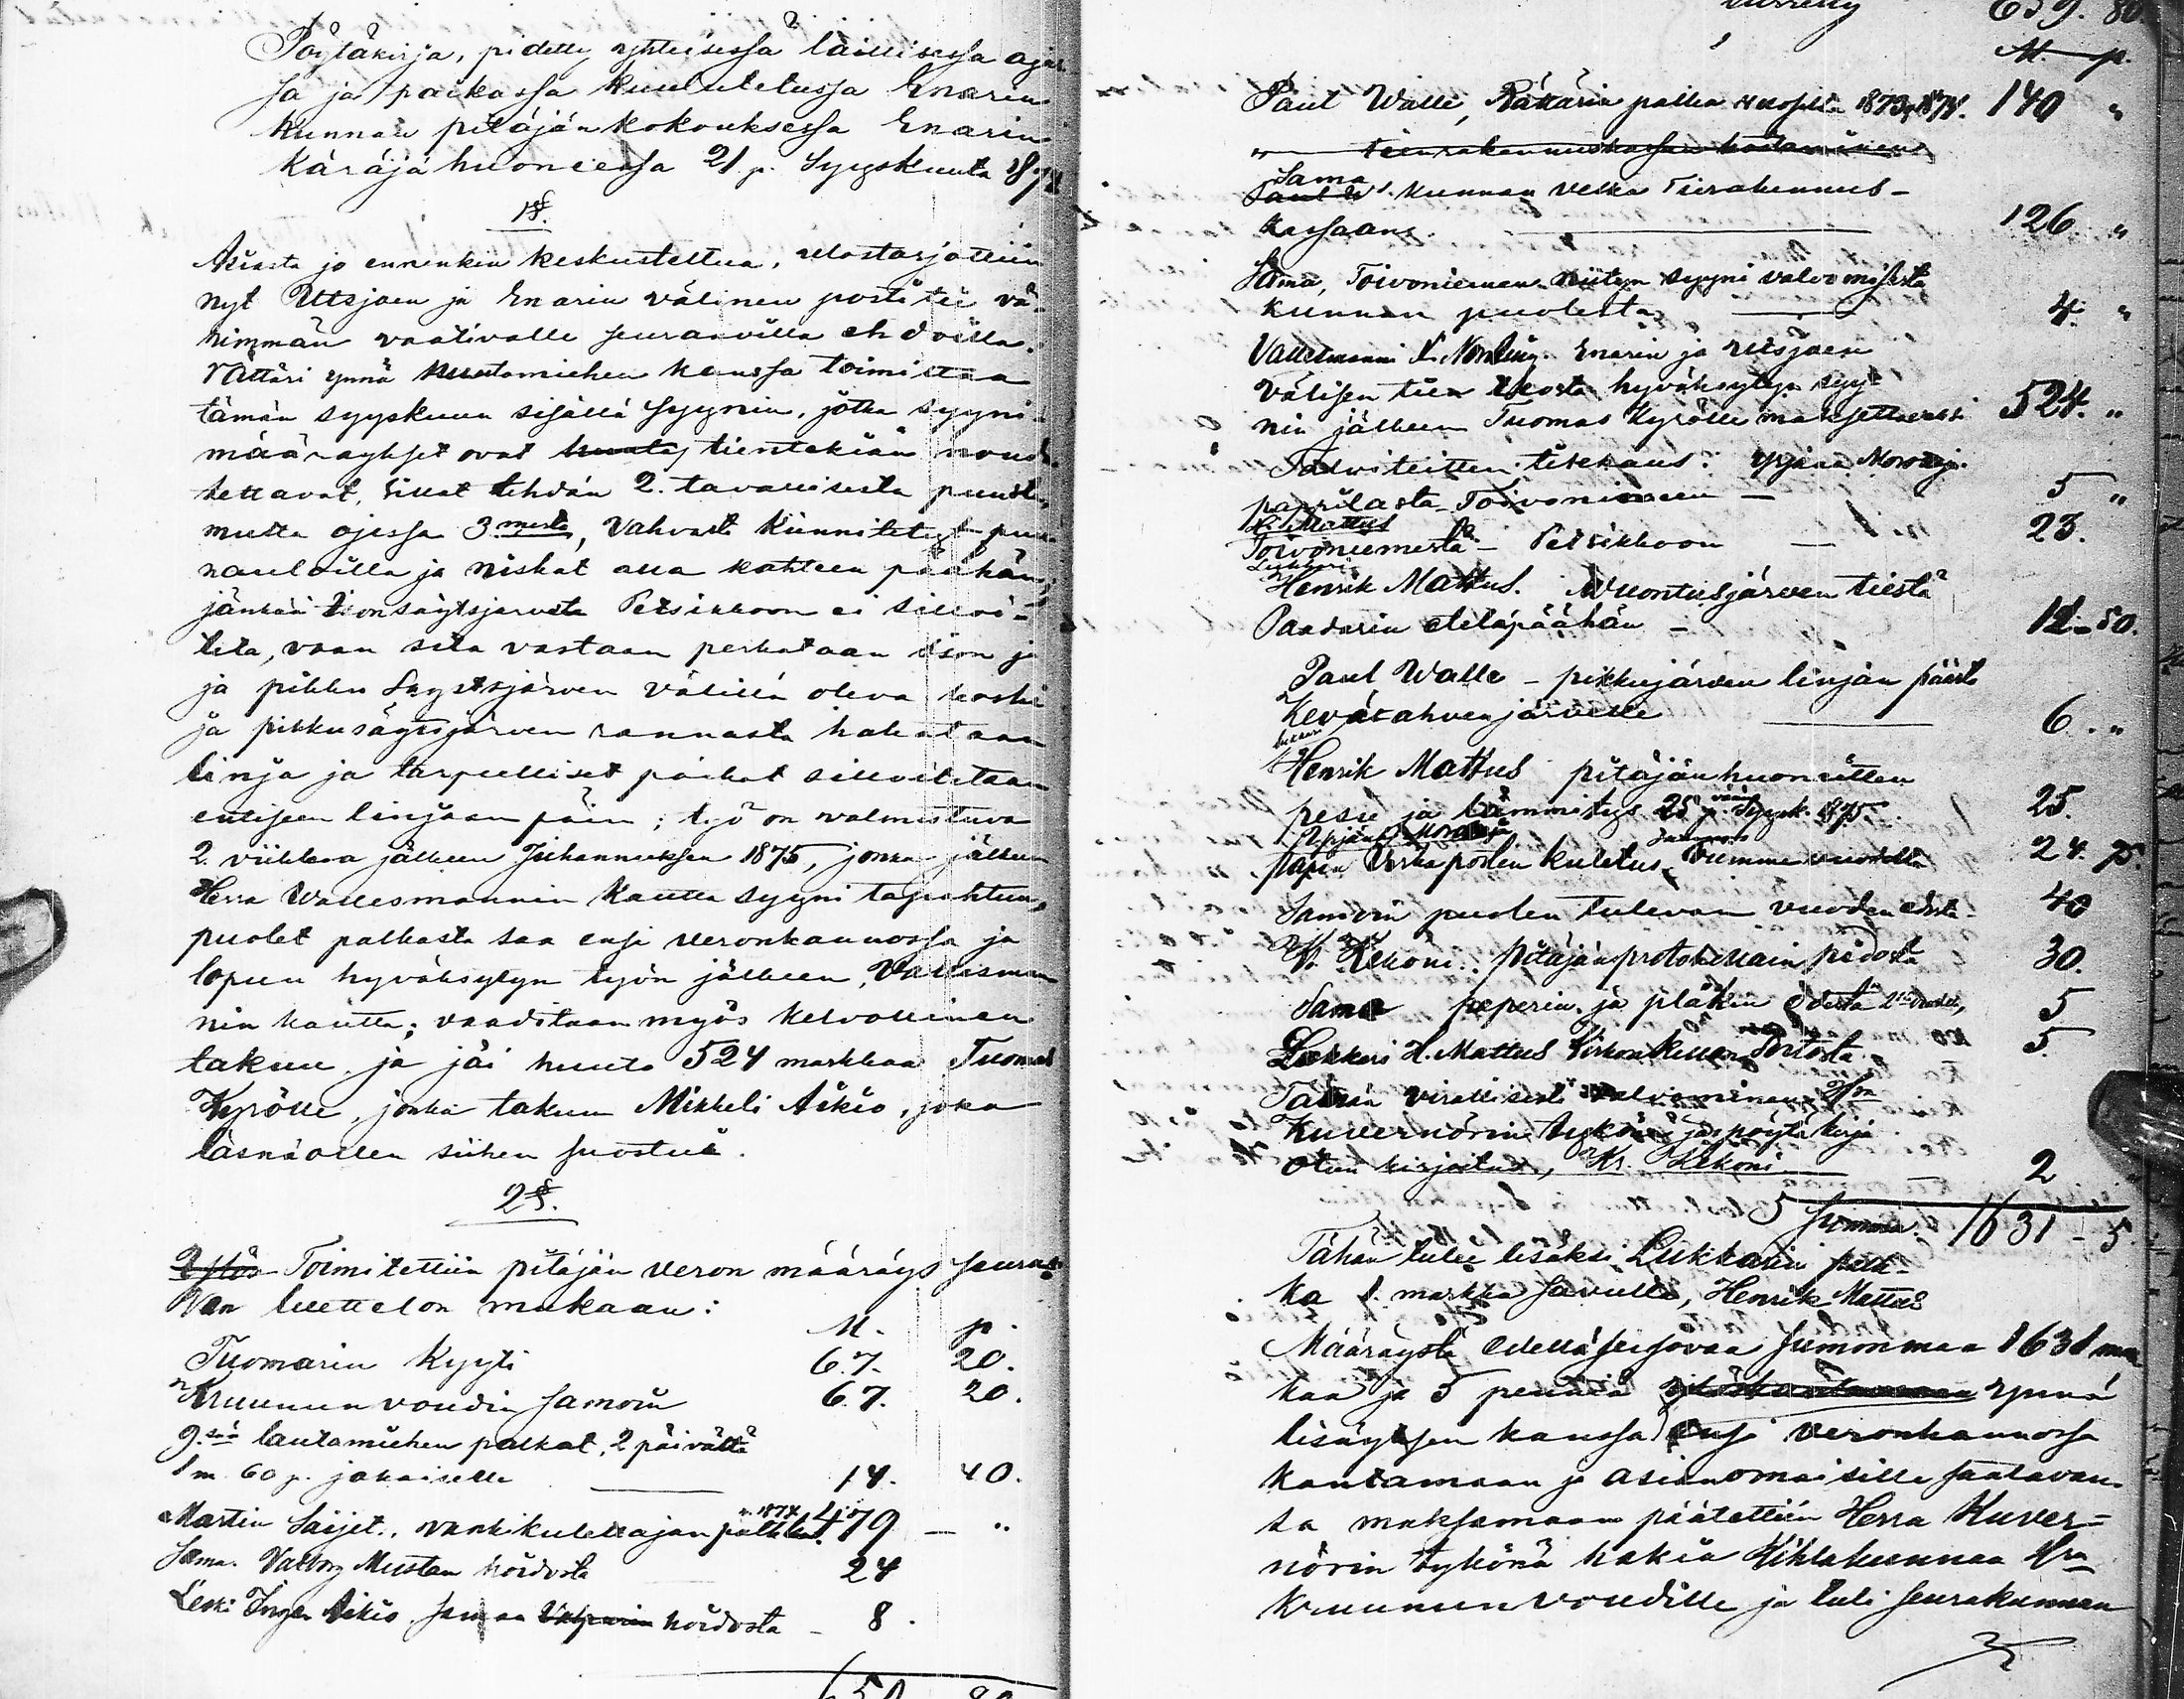 Pöytäkirja, pidetty yhteisessä laillisessa ajas
sa ja paikassa kuulutetussa Enarin
kunnan pitäjänkokouksessa Enarin
käräjähuoneessa 21 p. Syyskuuta 187
1§.
Asiasta jo ennenkin keskusteltua, ulostarjottiin
nyt Utsjoen ja Enarin välinen postitie vä-
himmän vaativalle seuraavilla ehdoilla.
Vättäri ynnä kuutomiehen kanssa toimittaa
tämän syyskuun sisällä syynin, jotka syyni-
määräykset ovat tientekiän noud
tettavat, Sillat tehdän 2. tavallisesta puust
musta ojessa 3 mesta, vahvasti kiinnitetyt puu
nauloilla ja niskat alla kahteen päähän;
jänkän Petsikkoon ei silloi-
teta, vaan sitä vastaan perkataan ison ja
ja pikku Säytsjärven välillä oleva koski
ja pikkusäytsjärven rannasta hakataan
linja ja tarpeelliset paikat silloitetaan
entiseen linjaan päin; työ on valmistuva
2. viikkoa jälkeen Juhannuksen 1875, jonka jälkeen
Herra Wallesmannin kautta syyni tapahtuu,
puolet palkasta saa ensi veronkannossa ja
lopun hyväksytyn työn jälkeen, Vallesman
nin kautta; vaaditaan myös kelvollinen
takuu ja jäi huuto 524 markkaa Tuomas
Kyrölle, jonka takuu Mikkeli Aikio, joka
läsnäollen siihen suostui.
2§.
Toimitettiin pitäjän veron määräys seuraa
van luettelon mukaan:
M. p.
Tuomarin Kyyti 67. 20.
Kruunun voudin samoin 67. 20.
9.sä lautamiehen palkat, 2 päivältä
1 m. 60 p. jokaiselle 14. 40.
Martin Saijet., vankikulettajan palkka 1874 479 — "
Sama. Valborg Mustan hoidosta 24
Leski Inger Aikio saman hoidosta – 8.
659. 80.
M. p.
Paul Walle, Rättärin palka vuosilta 1873, 1874. 140 "
Sama kunnan velka Tierakennus-
kassaan. 126. "
Sama, Toivoniemen niityn syyni valvomisesta
kunnan puolesta 4. "
Vallesmanni Nordling. Enarin ja Utsjoen
välisen tien teosta hyväksytyn syy-
nin jälkeen Tuomas Kyrölle maksettavaksi 524. "
Talviteitten tikkaus. Yrjänä Morottaja
pappilasta Toivoniemeen — 5 "
H. Mattus
Toivoniemestä – Petsikkoon — 23.
Lukkari
Henrik Mattus. Wuontusjärven tiestä
Paadarin eteläpäähän – 12–50.
Paul Walle – pikkujärven linjan päästä
Kevätahvenjärvelle 6. "
Lukkari
Henrik Mattus pitäjänhuonuitten
pesu ja lämmitys 25 p. Syysk. 1875. 25.
papin Virkapostin kuletus 24. 75.
Samoin puolen tulevan vuoden edestä 40
K. Kekoni. Pitäjänprotokollain pidosta 30.
Sama peperin ja pläkin edestä 5
Lukkari H. Mattus Kirkon 5.
Tämän virallisesti valvominen Hrn
Kuvernörin tykönä ja pöytäkirja
otun kirjoitus, Kr. Kekoni 2
Summa. 1631 – 5
Tähän tulee lisäksi Lukkarin palk-
ka 1. markka savulta, Henrik Mattus
Määräystä edellä seisovaa summaa 1631 mar
kaa ja 5 penniä ynnä
lisäyksen kanssa ensi veronkannossa
kantamaan ja asianomaisille saatavan-
sa maksamaan päätettiin Herra Kuver-
nörin tykönä hakia Kihlakunnan Hra
Kruununvoudille ja tuli seurakunnan